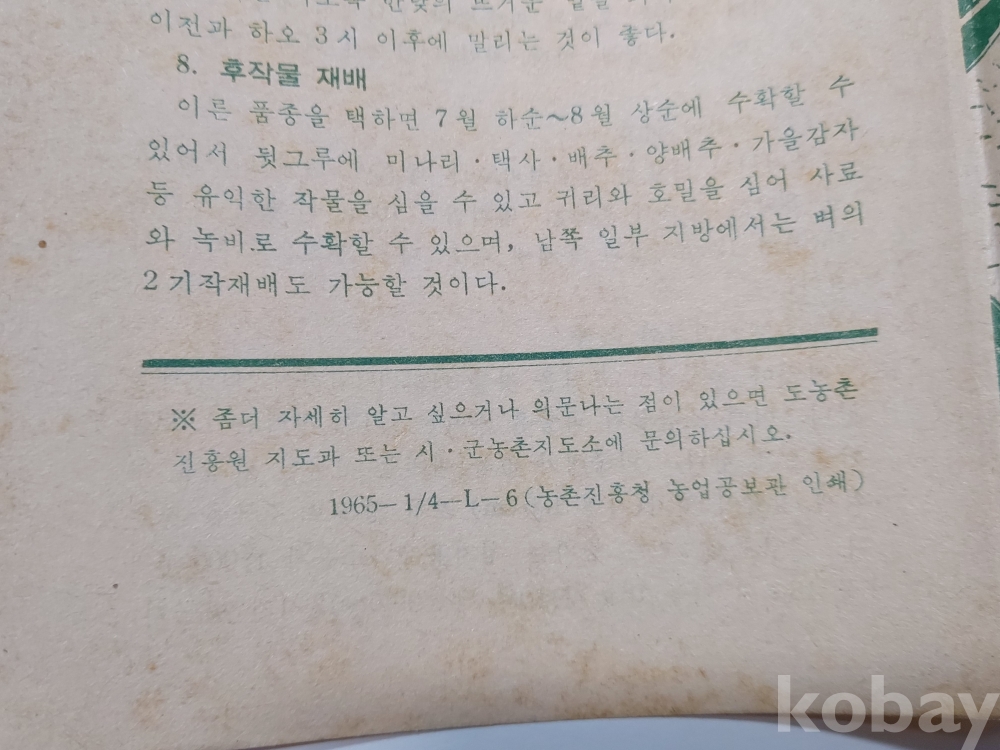 이전과 하오 3시 이후에 말리는 것이 좋다.
8. 후작물 재배
이른 품종을 택하면 7월 하순~8월 상순에 수확할 수
있어서 뒷그루에 미나리·택사·배추·양배추·가을감자
등 유익한 작물을 심을 수 있고 귀리와 호밀을 심어 사료
와 녹비로 수확할 수 있으며, 남쪽 일부 지방에서는 벼의
2기작재배도 가능할 것이다.
※ 좀더 자세히 알고 싶으거나 의문나는 점이 있으면 도농촌
진흥원 지도과 또는 시·군농촌지도소에 문의하십시오.
1965—1/4—L—6(농촌진흥청 농업공보관 인쇄)
kobay